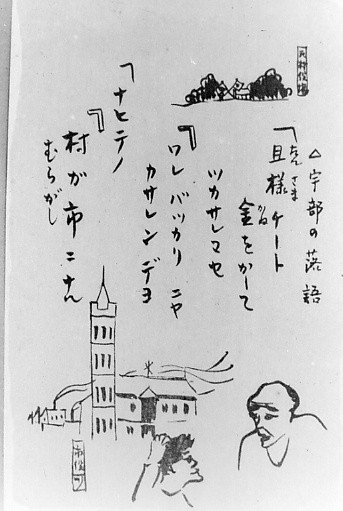 元村役場
△宇部の落語
「旦様ケート
だんさま
金をかーて
かね
ツカサレマセ
「ワレバッカリニャ
カサレンデヨ
「ナヒテノ
「村が市ニナん
むらがし
市役所